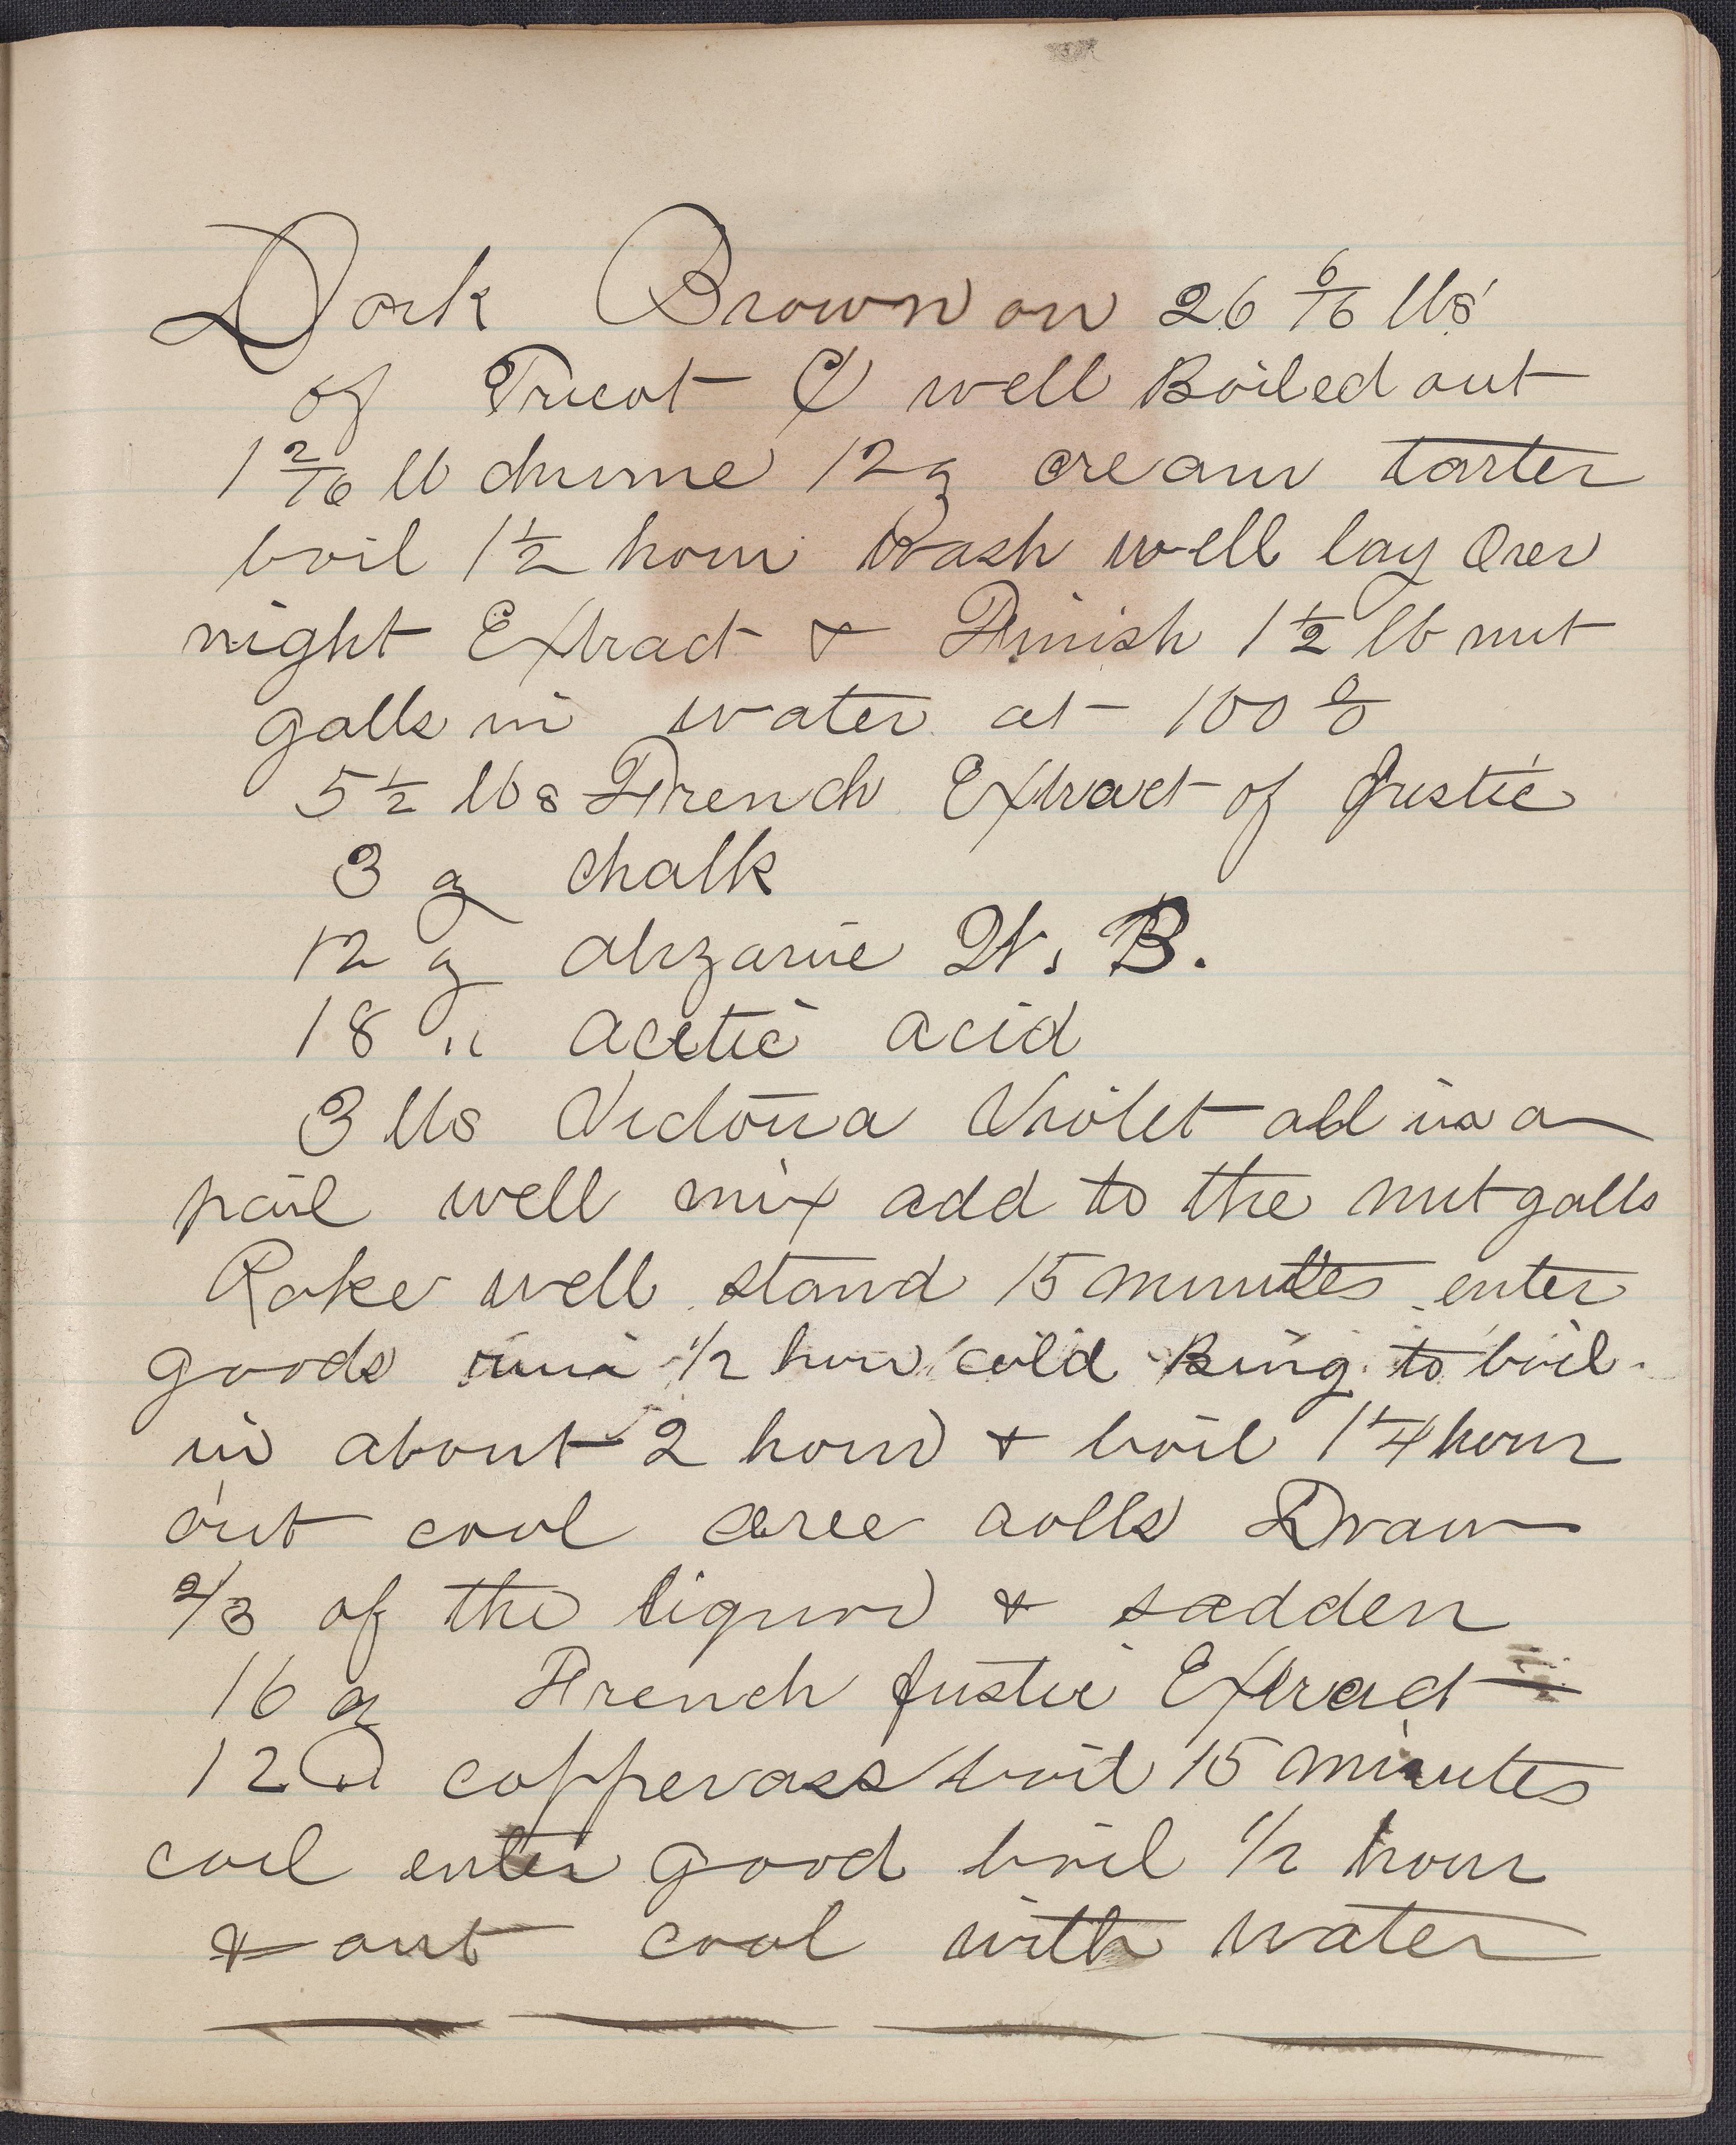 Dark Brown on 26 6/16 lbs
of Tricot C well Boiled out
1 2/16 lb chrome 12 oz cream tarter
boil 1 1/2 hour Wash well lay Over
night Extract & Finish 1 1/2 lb nut
galls in water at 100 %
5 1/2 lbs French Extract of fustic
3 oz chalk
12 oz alizarine W. B.
18 " acetic acid
3 lbs Victoria Violet all in a
pail well mix add to the nut galls
Rake well stand 15 minutes enter
goods run 1/2 hour cold Bring to boil
in about 2 hours & boil 1 1/4 hour
out cool over rolls Draw
2/3 of the liquor & sadden
16 oz French fustic Extract
12 coppevass boil 15 minutes
cool enter good boil 1/2 hour
& out cool with water